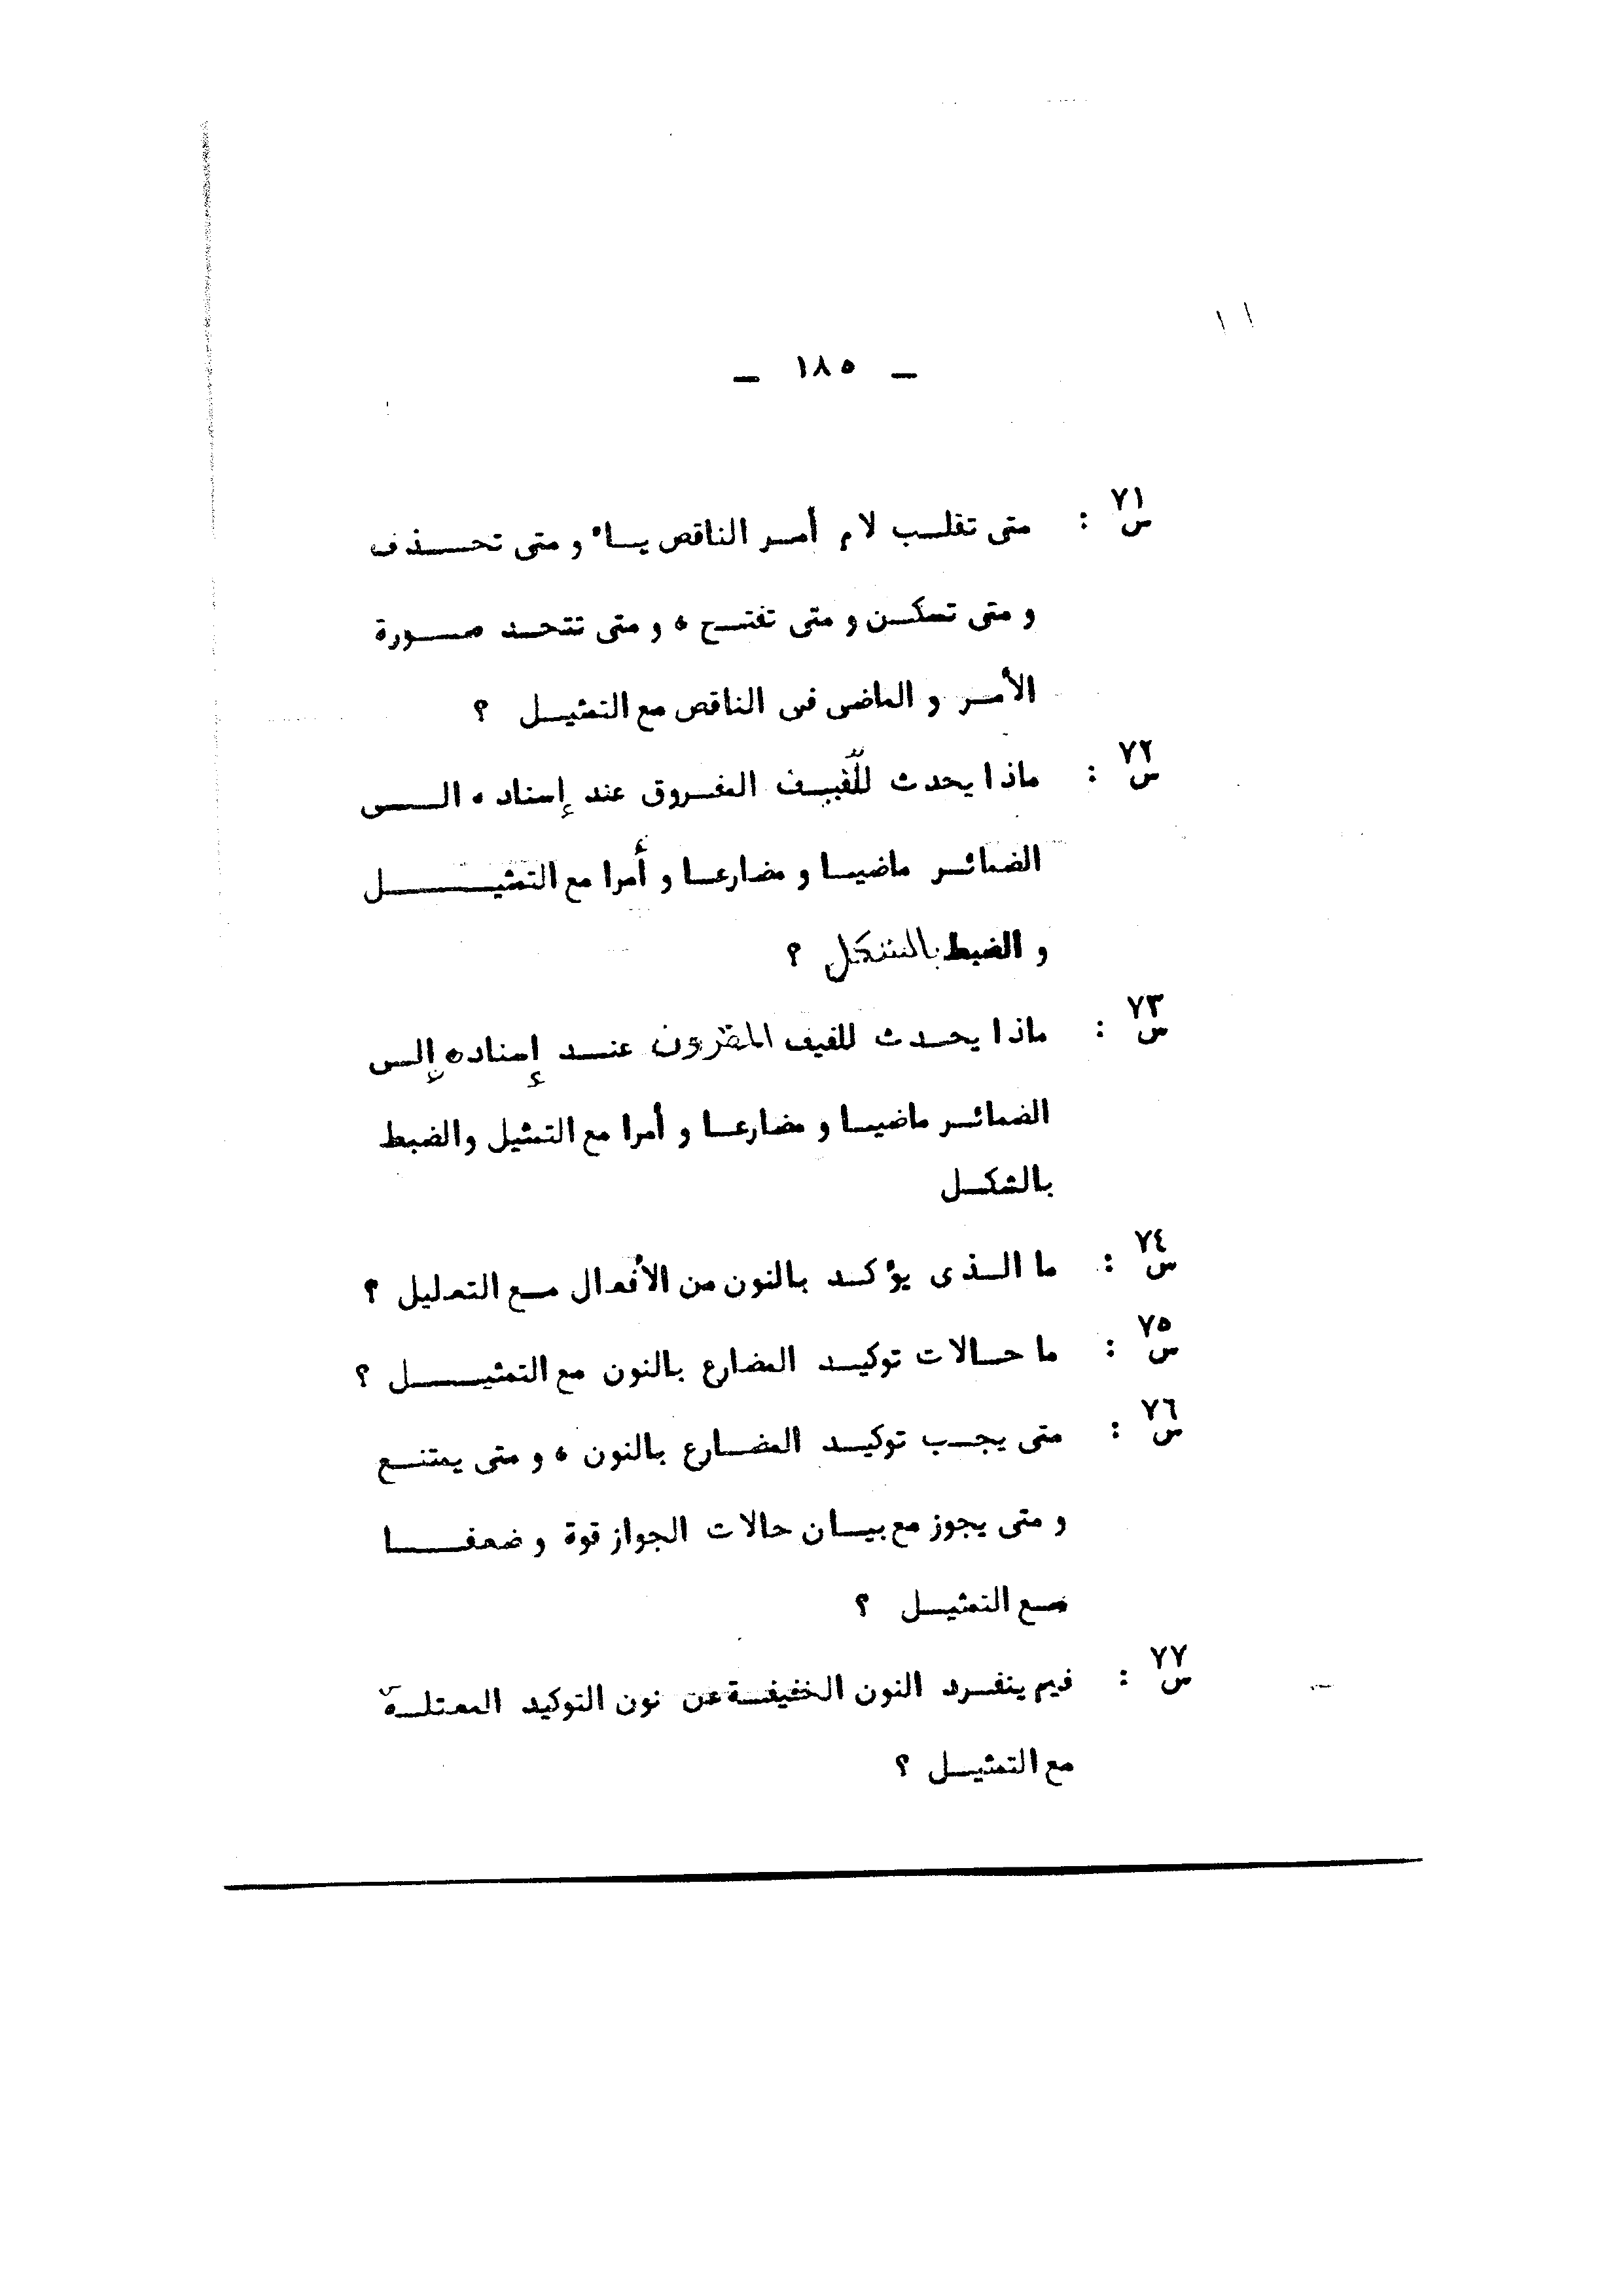 — ١٨٥ —
س٧١ : متى تقلب لام أمر الناقص ياء و متى تحذف
و متى تسكن و متى تفتح ، و متى تتحد صورة
الأمر و الماضى فى الناقص مع التمثيل ؟
س٧٢ : ماذا يحدث للّفيف المفروق عند إسناده الى
الضمائر ماضيا و مضارعا و أمرا مع التمثيل
و الضبط بالشكل ؟
س٧٣ : ماذا يحدث للفيف المقرون عند إسناده إلى
الضمائر ماضيا و مضارعا و أمرا مع التمثيل والضبط
بالشكل
س٧٤ : ما الذى يؤكد بالنون من الأفعال مع التعليل ؟
س٧٥ : ما حالات توكيد المضارع بالنون مع التمثيل ؟
س٧٦ : متى يجب توكيد المضارع بالنون ، و متى يمتنع
و متى يجوز مع بيان حالات الجواز قوة و ضعفا
مع التمثيل ؟
س٧٧ : فيم ينفرد النون الخفيفة عن نون التوكيد
مع التمثيل ؟